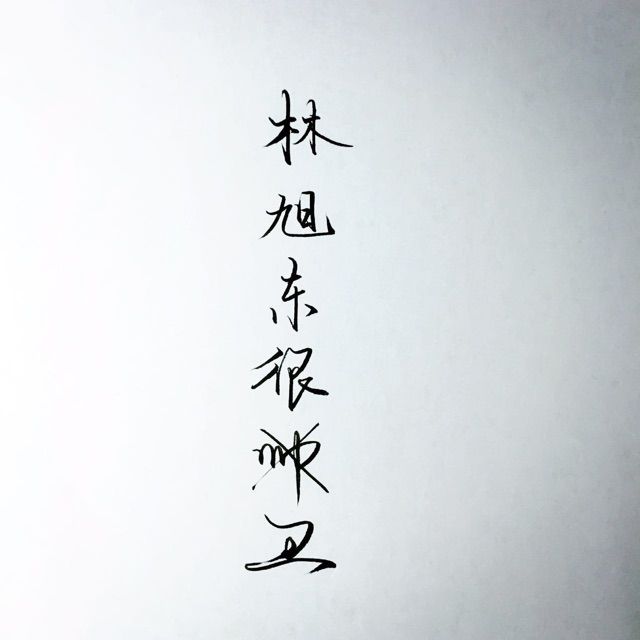 林旭东很帅丑